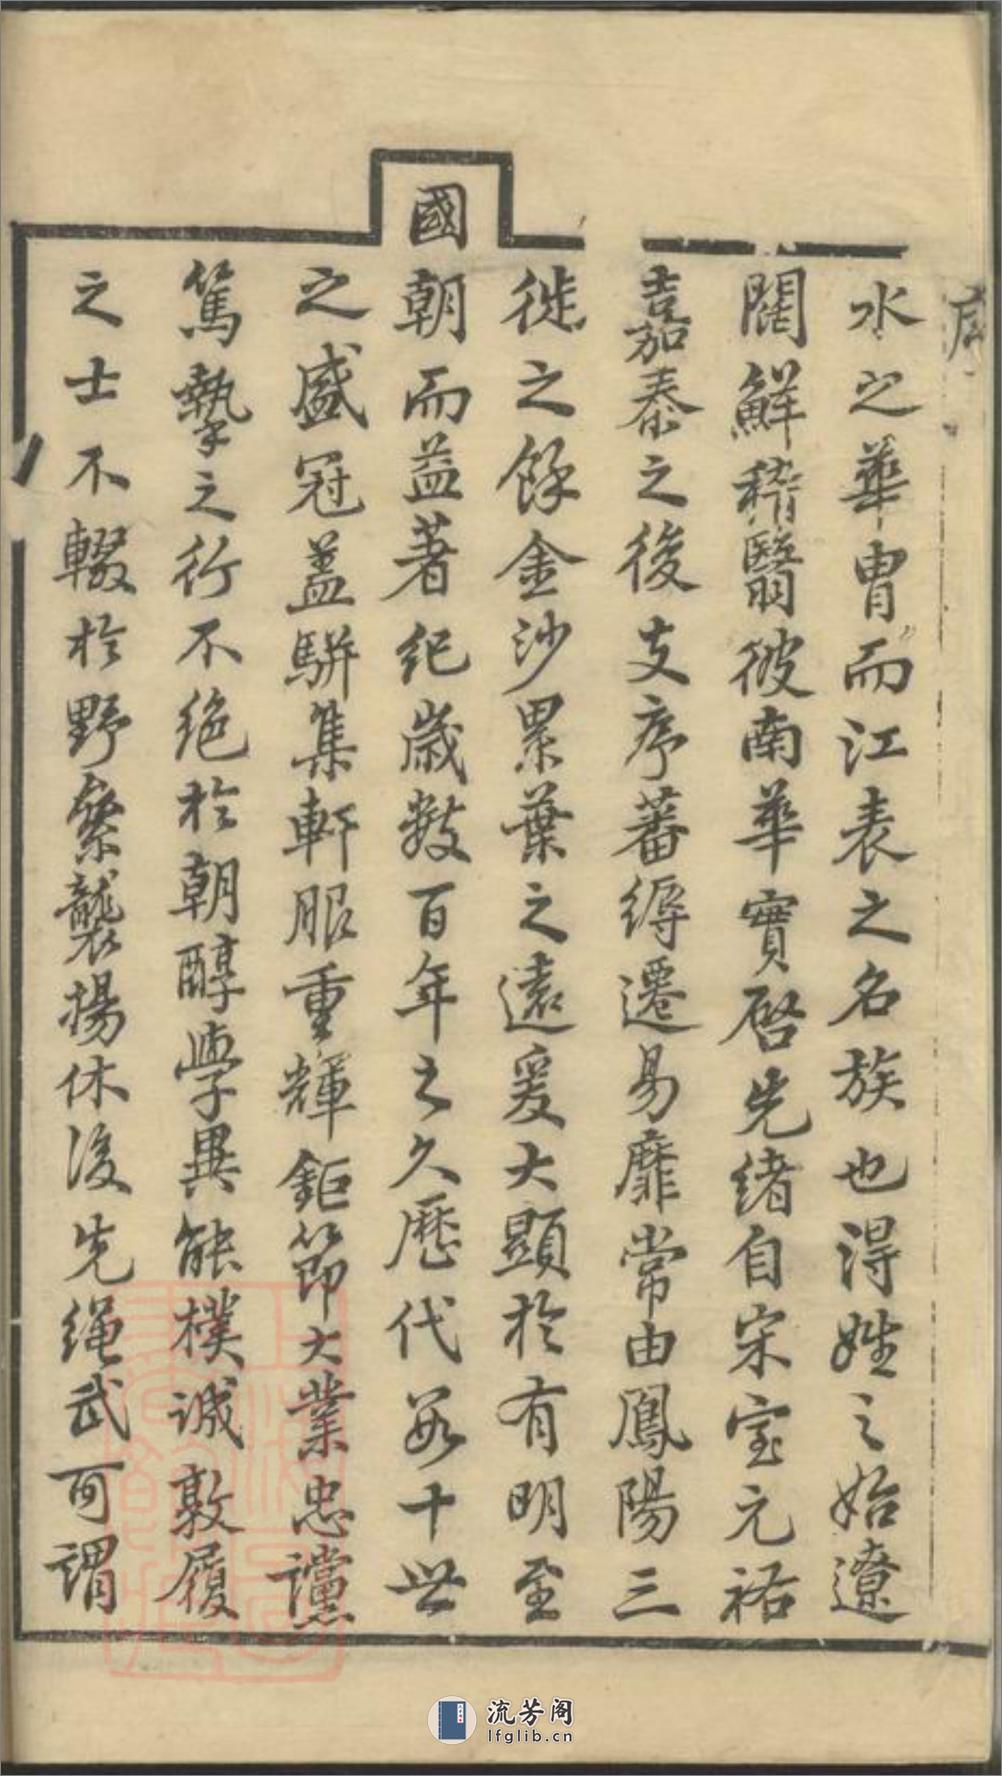 序
水之華胄而江表之名族也得姓之始遼
闊鮮稽翳彼南華實啓先緒自宋室元祐
嘉泰之後支序蕃縟遷易靡常由鳳陽三
徙之餘金沙累葉之遠爰大顯於有明至
國朝而益著紀歲數百年之久歷代數十世
之盛冠蓋駢集軒服重輝鉅節大業忠讜
篤摯之行不絕於朝醇學異能樸誠敦履
之士不輟於野繁襲揚休後先繩武可謂
流芳阁
lfglib.cn